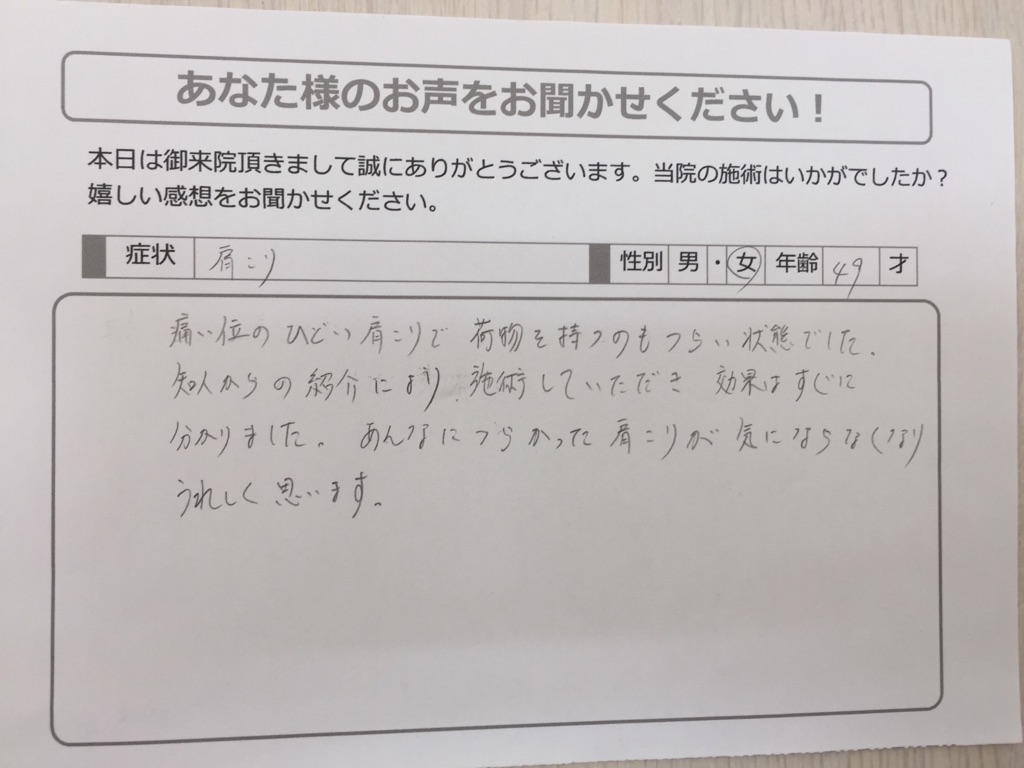 あなた様のお声をお聞かせください！
本日は御来院頂きまして誠にありがとうございます。当院の施術はいかがでしたか？
嬉しい感想をお聞かせください。
症状 肩こり 性別 男・女 年齢 49 才
痛い位のひどい肩こりで 荷物を持つのもつらい状態でした。
知人からの紹介により 施術していただき 効果はすぐに
分かりました。あんなにつらかった肩こりが 気にならなくなり
うれしく思います。